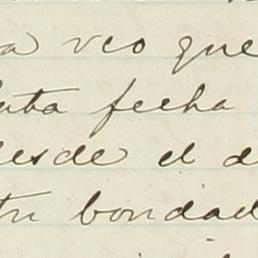 a veo que
fecha
desde el d
tu bondad